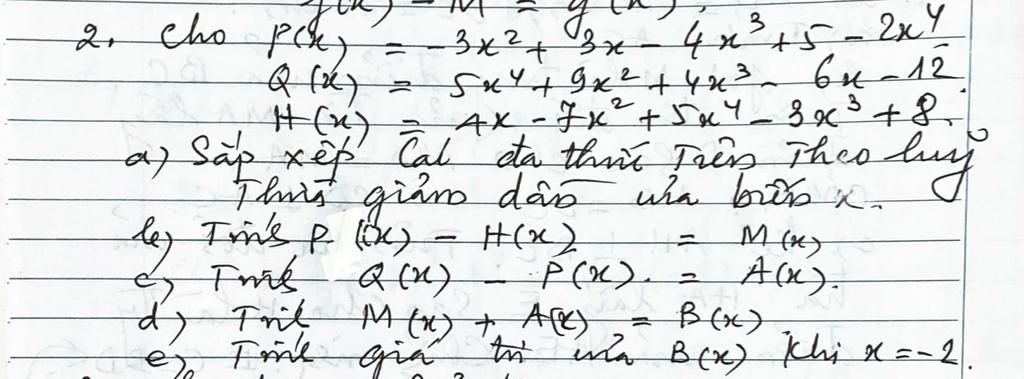 2. Cho P(x) = -3x² + 3x - 4x³ + 5 - 2x⁴
Q(x) = 5x⁴ + 9x² + 4x³ - 6x - 12
H(x) = 4x - 7x² + 5x⁴ - 3x³ + 8.
a) Sắp xếp Các đa thức Trên Theo luỹ
Thừa giảm dần của biến x.
b) Tính P(x) - H(x) = M(x)
c) Tính Q(x) - P(x) = A(x).
d) Tính M(x) + A(x) = B(x)
e) Tính giá trị của B(x) khi x = -2.